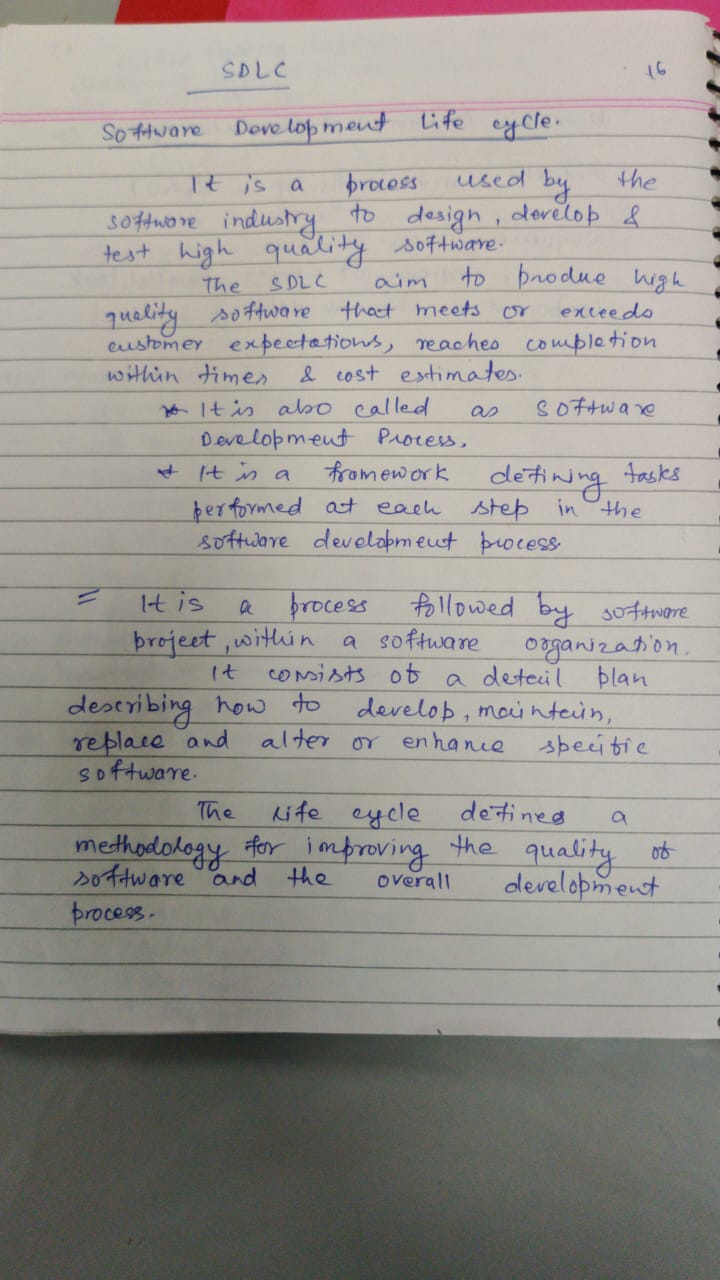 SDLC
16
Software Development Life cycle.
It is a process used by the
software industry to design, develop &
test high quality software.
The SDLC aim to produe high
quality software that meets or exceeds
customer expectations, reaches completion
within times & cost estimates.
* It is also called as software
Development Process,
* It is a framework defining tasks
performed at each step in the
software development process
= It is a process followed by software
project, within a software organization.
It consists of a detail plan
describing how to develop, maintain,
replace and alter or enhance specific
software.
The Life cycle defines a
methodology for improving the quality of
software and the overall development
process.